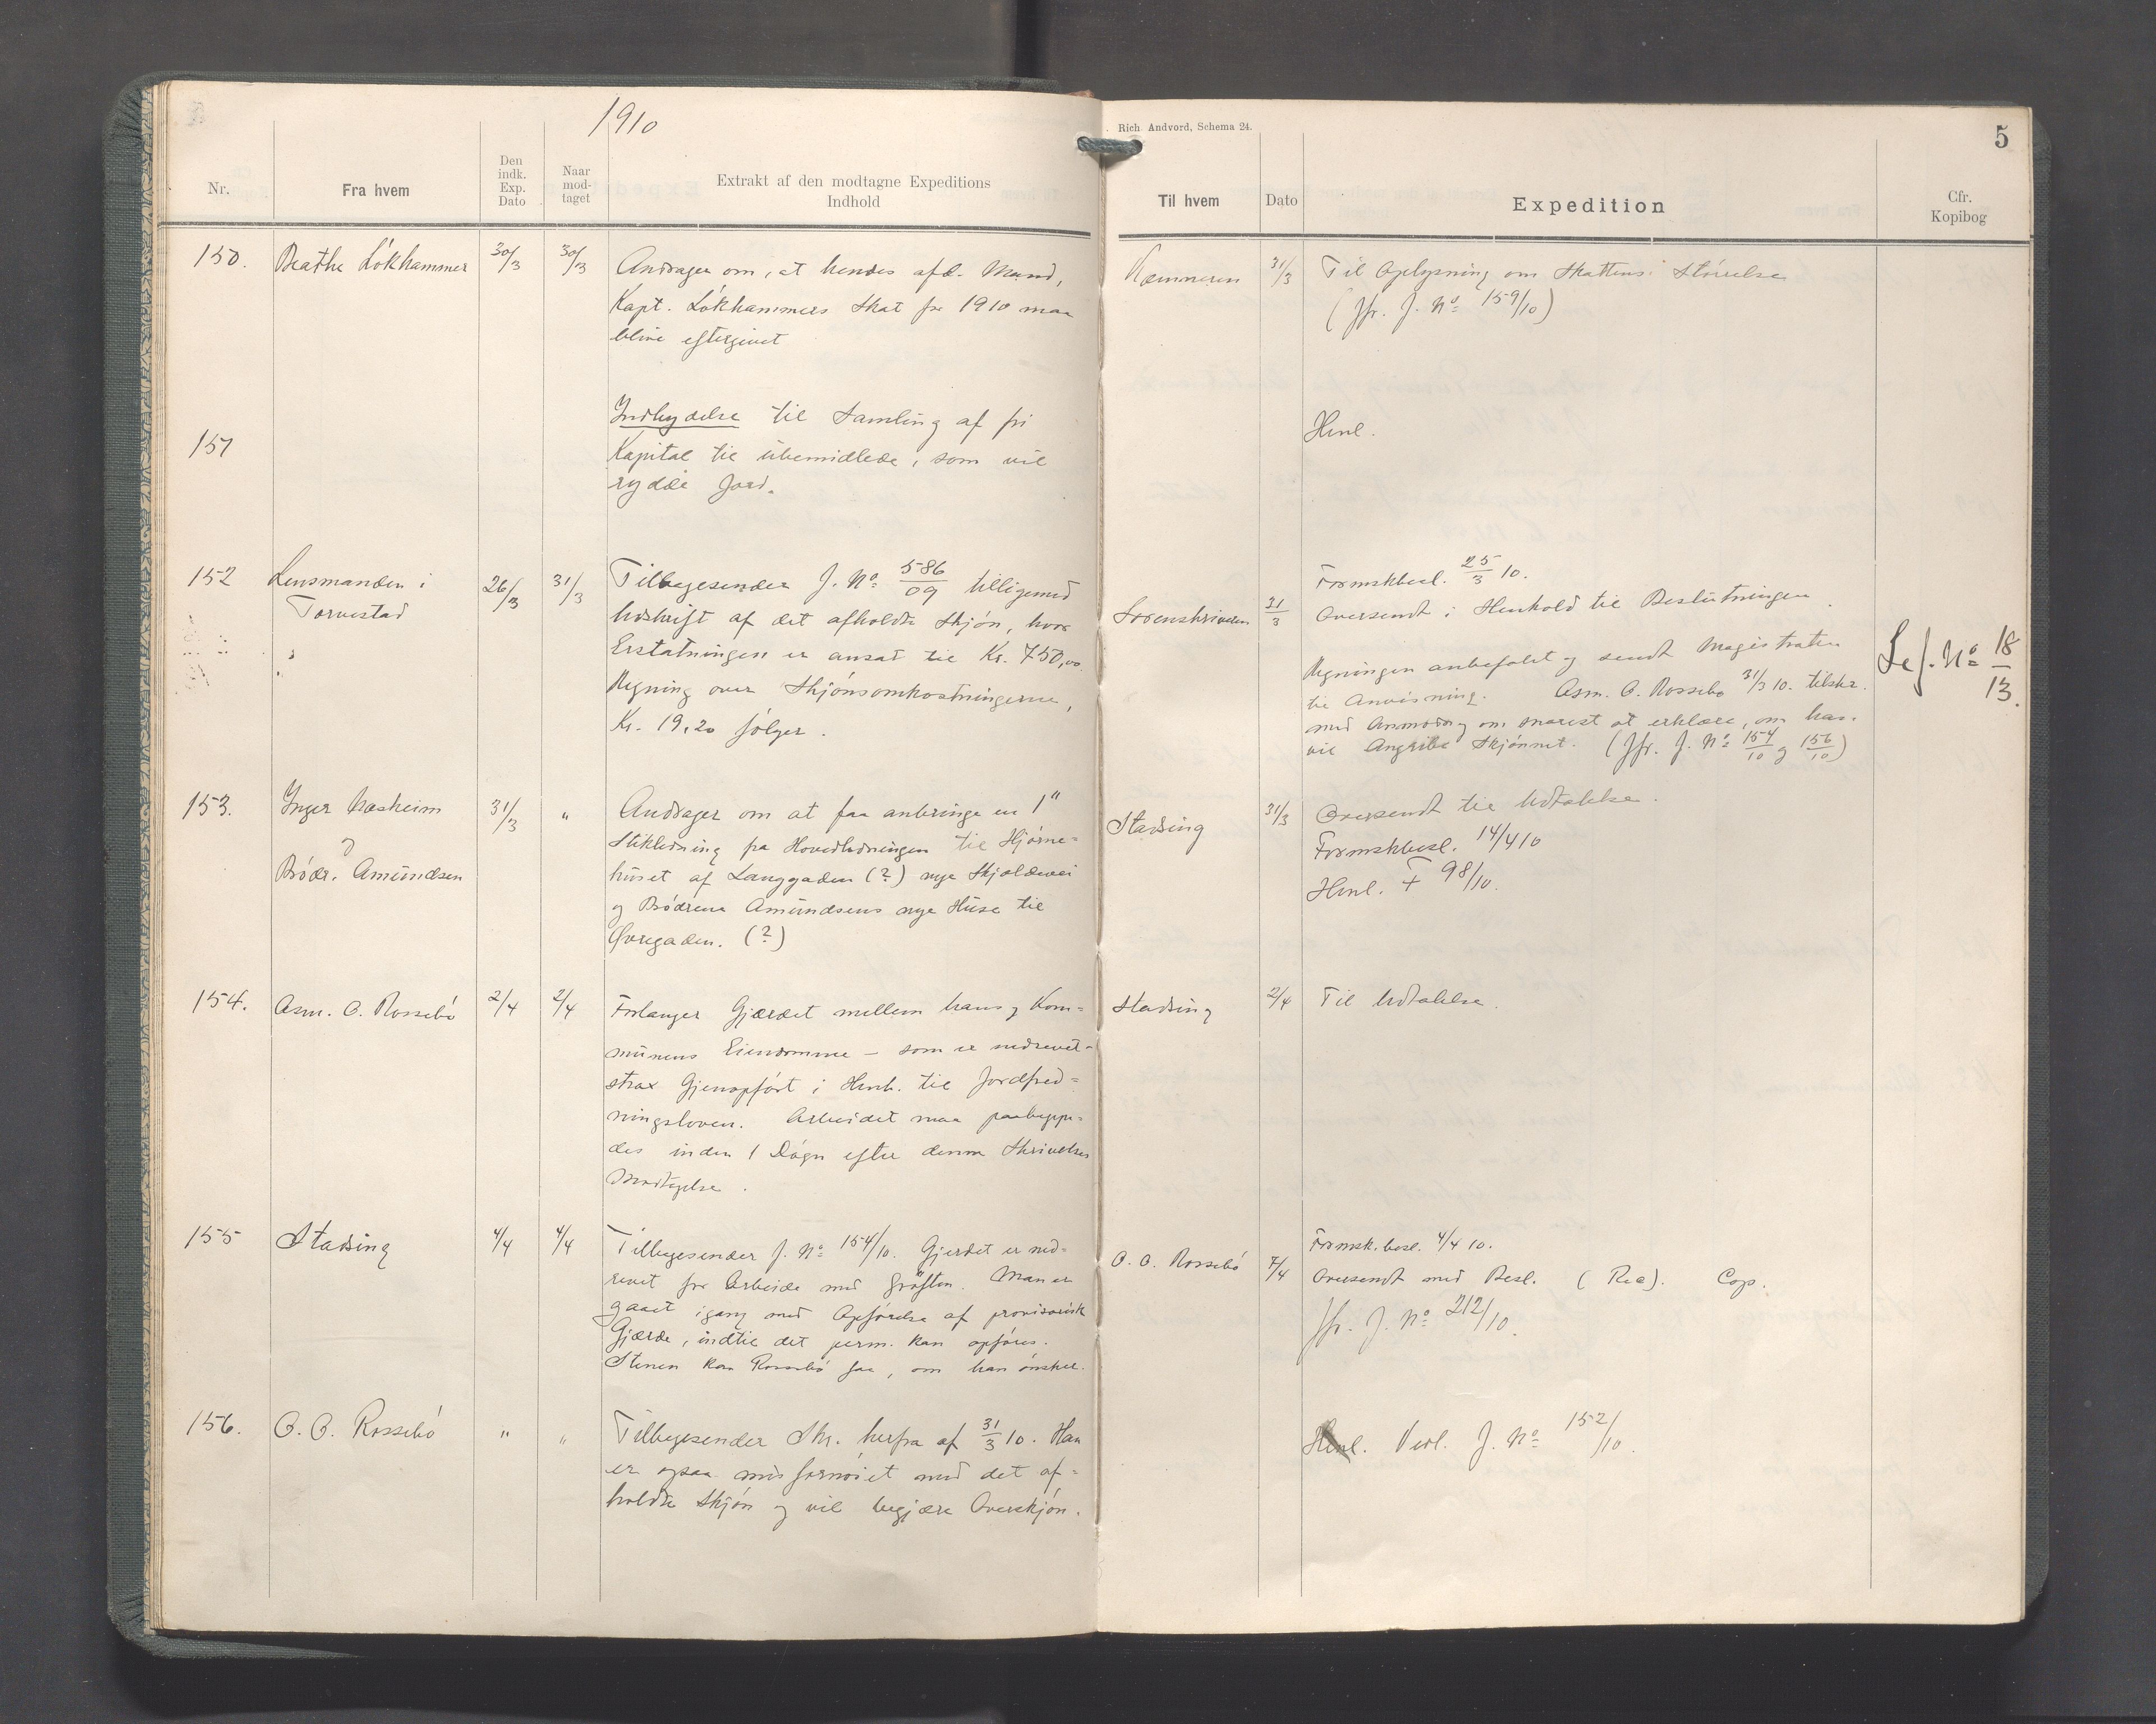 1910
Rich Andvord, Schema 24.
5
Nr.
Fra hvem
Den indk. Exp. Dato
Naar mod- taget
Extrakt af den modtagne Expeditions Indhold
Til hvem
Dato
Expedition
Cfr. Kopibog
150. Beathe Lökhammer 30/3 30/3 Andrager om, at hendes afd. Mand,
Kapt. Lökhammers Skat for 1910 maa
blive eftergivet
Kæmneren 31/3 Til Oplysning om Skattens Størrelse
(Jfr. J. No 159/10)
151 Indbydelse til Samling af fri
Kapital til ubemidlede, som vil
rydde Jord.
Henl.
152 Lensmanden i
Torvestad
26/3 31/3 Tilbagesender J. No 586/09 tilligemed
Udskrift af det afholdte Skjön, hvor
Erstatningen er ansat til Kr. 750,00.
Regning over Skjönsomkostningerne,
Kr. 19,20 fölger.
Sorenskriveren 31/3 Formskbesl. 25/3 10.
Oversendt i Henhold til Beslutningen
Regningen anbefalet og sendt Magistraten
til Anvisning. Asm. O. Rossebø 31/3 10. tilskr.
med Anmodng om snarest at erklære, om han
vil Angribe Skjönnet. (Jfr. J. No 154/10 og 156/10)
Se J. No 18/13.
153. Inger Aasheim
og
Brödr. Amundsen
31/3 " Andrager om at faa anbringe en 1"
Stikledning fra Hovedledningen til Hjörne-
huset af Langgaden (?) nye Skjoldevei
og Brödrene Amundsens nye Huse til
Øvregaden. (?)
Stadsing 31/3 Oversendt til Udtalelse.
Formskbesl. 14/4 10
Henl. + 98/10.
154. Asm. O. Rossebö 2/4 2/4 Forlanger Gjærdet mellem hans og Kom-
munens Eiendomme - som er nedrevet -
strax Gjenopfört i Henh. til Jordfred-
ningsloven. Arbeidet maa paabegyn-
des inden 1 Dögn efter denne Skrivelses
Modtagelse.
Stadsing 2/4 Til Udtalelse.
155 Stadsing 4/4 4/4 Tilbagesender J. No 154/10. Gjerdet er ned-
revet for Arbeide med Gröften. Man er
gaaet igang med Opförelse af provisorisk
Gjærde, indtil det perm. kan opföres.
Stenen kan Rossebö faa, om han önsker.
O. O. Rossebö 7/4 Formsk.besl. 4/4 10.
Oversendt med Besl. ( Rec). Cop.
Jfr. J. No 212/10.
156. O. O. Rossebö " " Tilbagesender Skr. herfra af 31/3 10. Han
er ogsaa misfornöiet med det af-
holdte Skjön og vil begjære Overskjön.
Henl. Vedl. J. No 152/10.